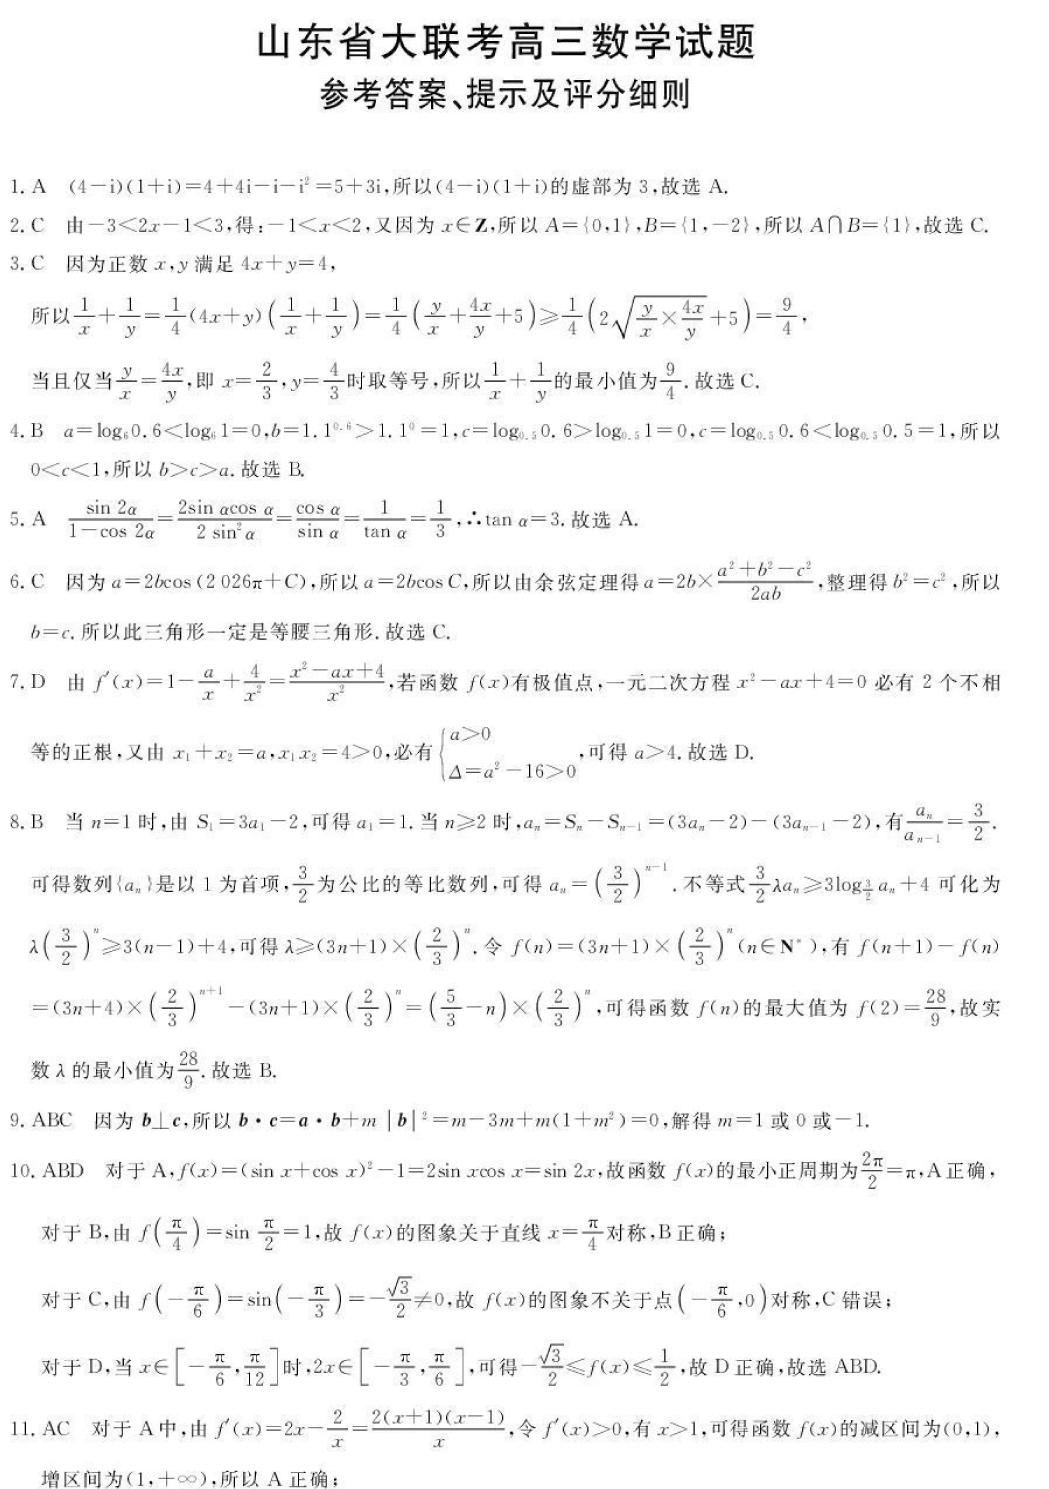 山东省大联考高三数学试题
参考答案、提示及评分细则
1. A (4－i)(1＋i)＝4＋4i－i－i²＝5＋3i,所以(4－i)(1＋i)的虚部为 3,故选 A.
2. C 由－3<2x－1<3,得:－1<x<2,又因为 x∈Z,所以 A＝{0,1},B＝{1,－2},所以 A∩B＝{1},故选 C.
3. C 因为正数 x,y 满足 4x＋y＝4,
所以 1/x＋1/y＝1/4(4x＋y)(1/x＋1/y)＝1/4(y/x＋4x/y＋5)≥1/4(2√(y/x×4x/y)＋5)＝9/4,
当且仅当 y/x＝4x/y,即 x＝2/3,y＝4/3 时取等号,所以 1/x＋1/y 的最小值为 9/4.故选 C.
4. B a＝log₆0.6<log₆1＝0,b＝1.1^0.6>1.1^0＝1,c＝log_0.5 0.6>log_0.5 1＝0,c＝log_0.5 0.6<log_0.5 0.5＝1,所以
0<c<1,所以 b>c>a.故选 B.
5. A sin 2α/(1－cos 2α)＝2sin αcos α/(2 sin²α)＝cos α/sin α＝1/tan α＝1/3,∴tan α＝3.故选 A.
6. C 因为 a＝2bcos (2 026π＋C),所以 a＝2bcos C,所以由余弦定理得 a＝2b×(a²＋b²－c²)/2ab,整理得 b²＝c²,所以
b＝c.所以此三角形一定是等腰三角形.故选 C.
7. D 由 f′(x)＝1－a/x＋4/x²＝(x²－ax＋4)/x²,若函数 f(x)有极值点,一元二次方程 x²－ax＋4＝0 必有 2 个不相
等的正根,又由 x₁＋x₂＝a,x₁x₂＝4>0,必有{a>0 Δ＝a²－16>0,可得 a>4.故选 D.
8. B 当 n＝1 时,由 S₁＝3a₁－2,可得 a₁＝1.当 n≥2 时,aₙ＝Sₙ－Sₙ₋₁＝(3aₙ－2)－(3aₙ₋₁－2),有 aₙ/aₙ₋₁＝3/2.
可得数列{aₙ}是以 1 为首项,3/2 为公比的等比数列,可得 aₙ＝(3/2)^(n－1).不等式 3/2 λaₙ≥3log_(3/2) aₙ＋4 可化为
λ(3/2)^n≥3(n－1)＋4,可得 λ≥(3n＋1)×(2/3)^n.令 f(n)＝(3n＋1)×(2/3)^n(n∈N*),有 f(n＋1)－f(n)
＝(3n＋4)×(2/3)^(n＋1)－(3n＋1)×(2/3)^n＝(5/3－n)×(2/3)^n,可得函数 f(n)的最大值为 f(2)＝28/9,故实
数 λ 的最小值为 28/9.故选 B.
9. ABC 因为 b⊥c,所以 b·c＝a·b＋m|b|²＝m－3m＋m(1＋m²)＝0,解得 m＝1 或 0 或－1.
10. ABD 对于 A,f(x)＝(sin x＋cos x)²－1＝2sin xcos x＝sin 2x,故函数 f(x)的最小正周期为 2π/2＝π,A 正确,
对于 B,由 f(π/4)＝sin π/2＝1,故 f(x)的图象关于直线 x＝π/4 对称,B 正确;
对于 C,由 f(－π/6)＝sin(－π/3)＝－√3/2≠0,故 f(x)的图象不关于点(－π/6,0)对称,C 错误;
对于 D,当 x∈[－π/6,π/12]时,2x∈[－π/3,π/6],可得－√3/2≤f(x)≤1/2,故 D 正确,故选 ABD.
11. AC 对于 A 中,由 f′(x)＝2x－2/x＝2(x＋1)(x－1)/x,令 f′(x)>0,有 x>1,可得函数 f(x)的减区间为(0,1),
增区间为(1,＋∞),所以 A 正确;